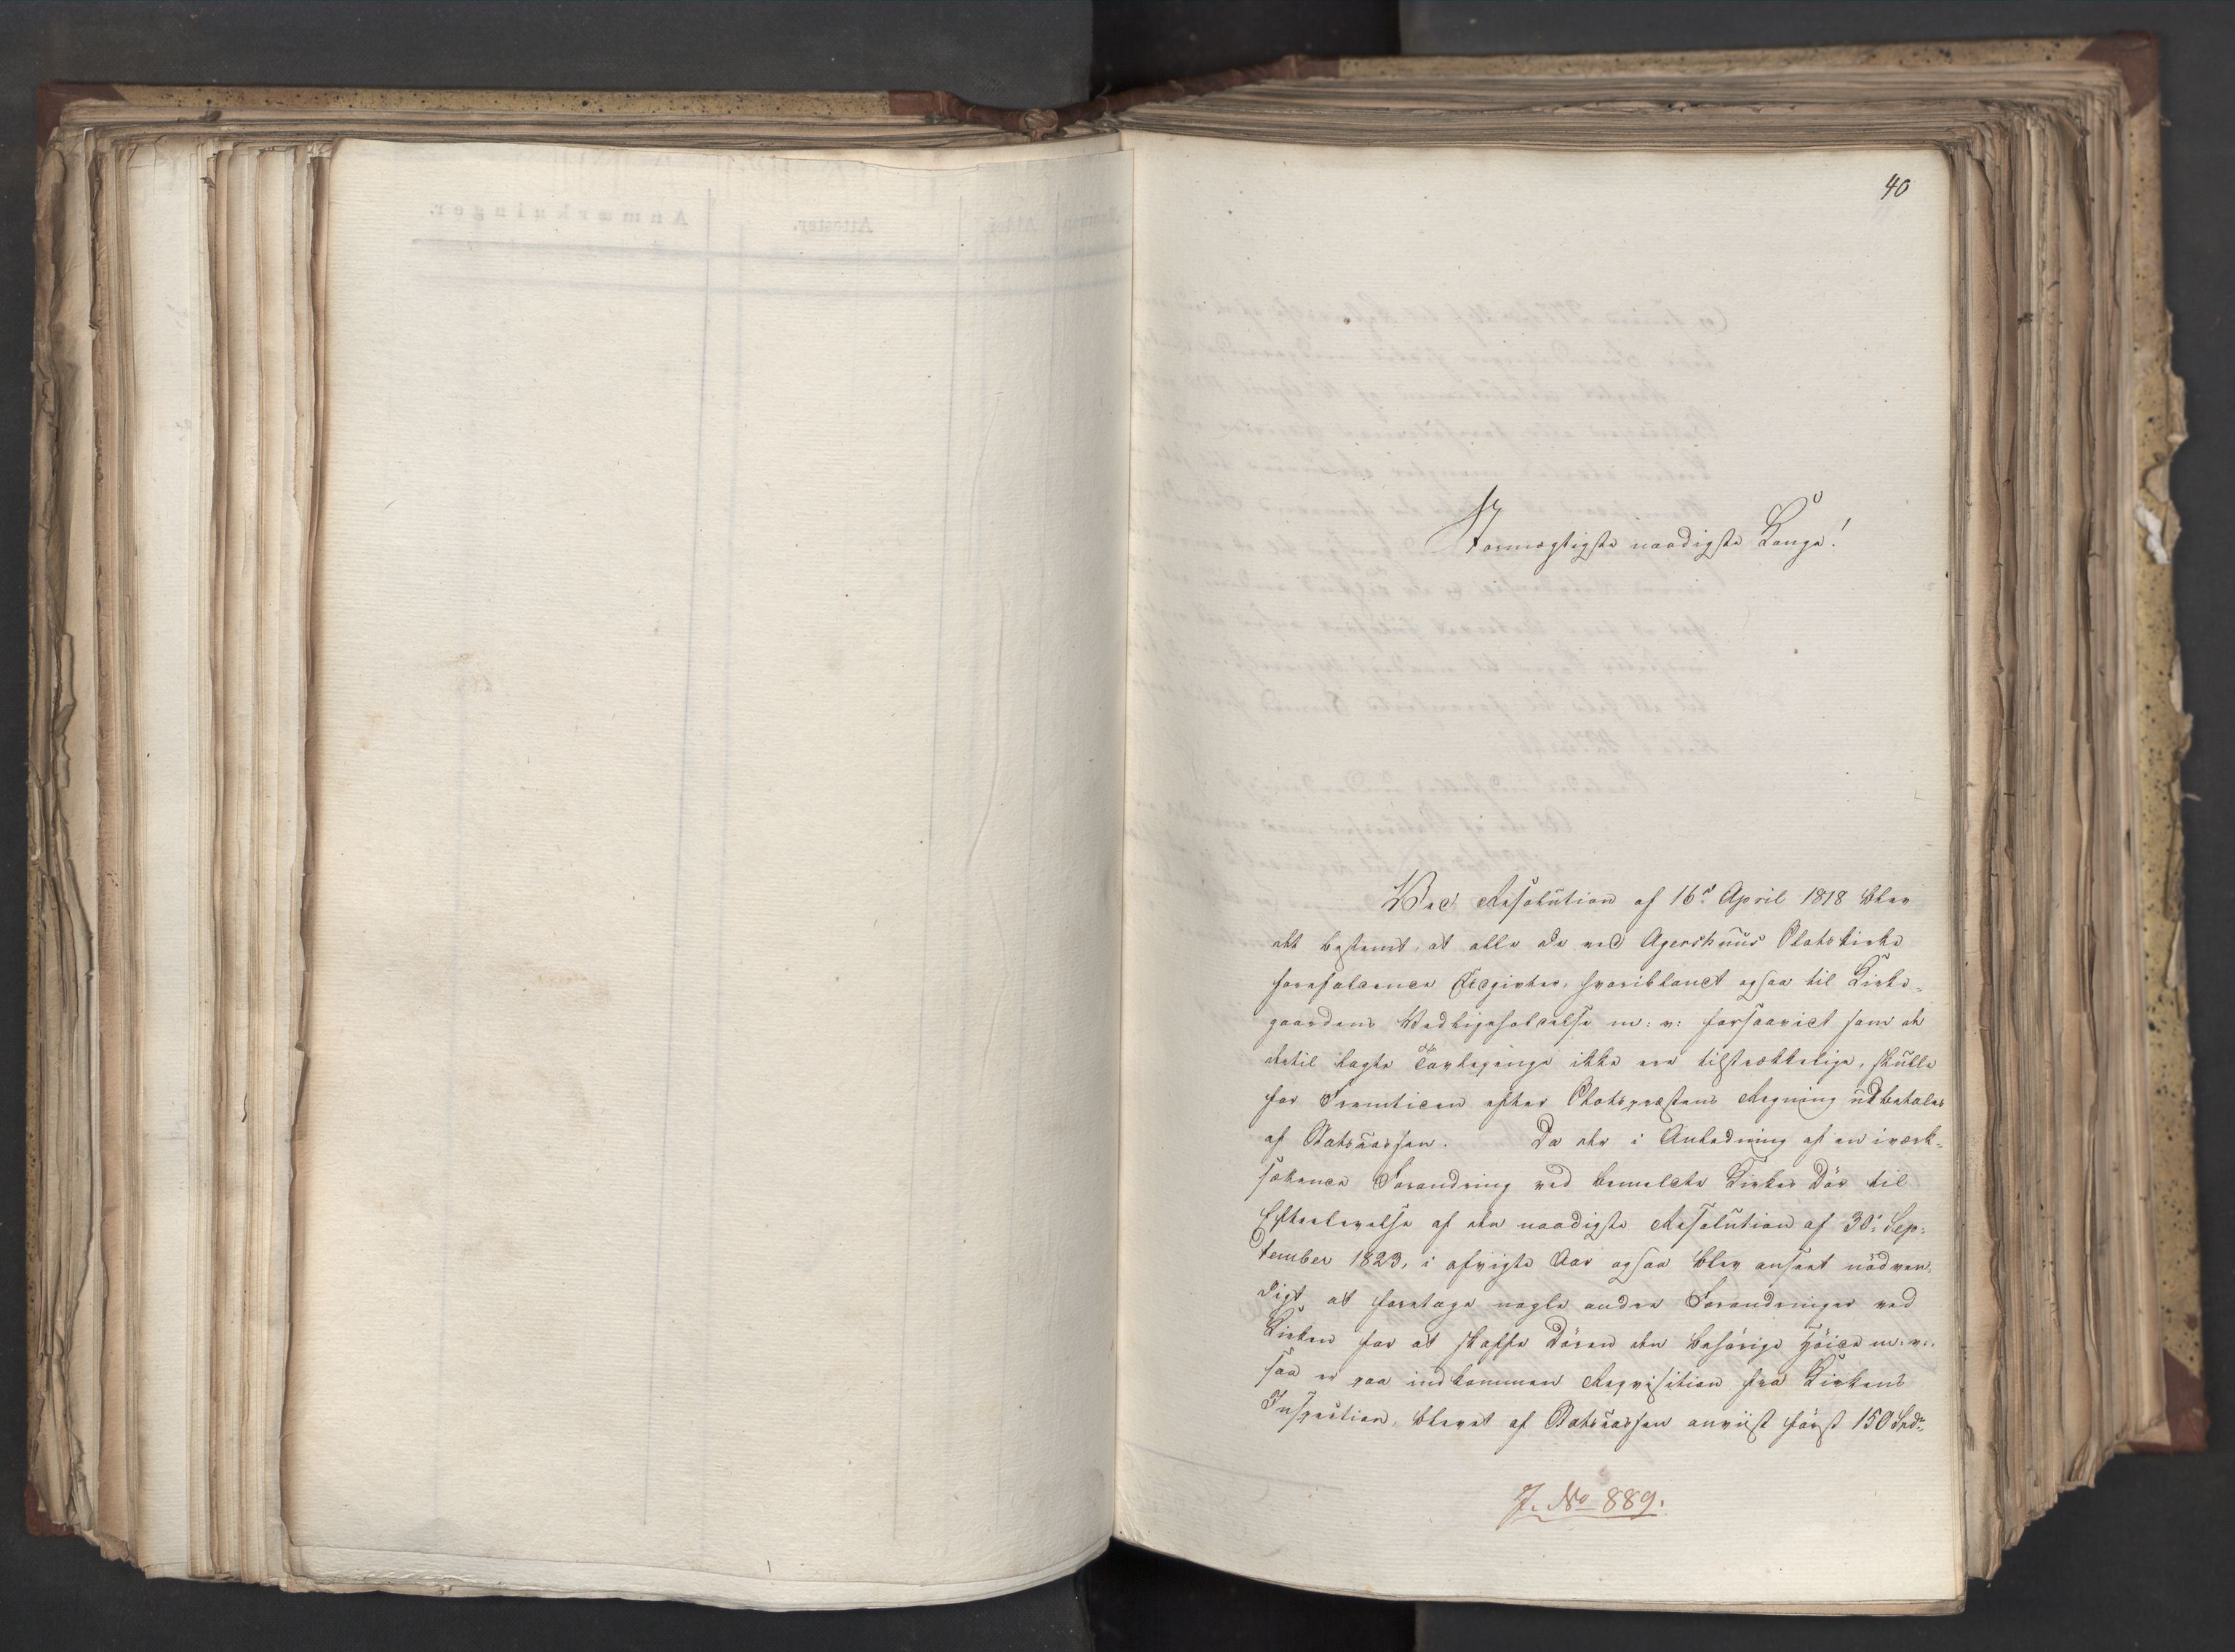 40
Stormægtigste naadigste Konge!
Ved Resolution af 16de April 1818 blev
det bestemt, at alle de ved Agershuus Slotskirke
forefaldende Udgivter, hvoriblandt ogsaa til Kirke-
gaardens Vedligeholdelse m: v: forsaavidt som de
dertil lagte Indtægter ikke ere tilstrækkelige, skulle
for Fremtiden efter Slotspræstens Regning udbetales
af Statscassen. Da der i Anledning af en iværk-
sættende Forandring ved bemeldte Kirkes Dør til
Efterlevelse af den naadigste Resolution af 30: Sep-
tember 1823, i afvigte Aar ogsaa blev anseet nødven-
digt at foretage nogle andre Forandringer ved
Kirken for at skaffe Døren den behørige Høide m: v:,
saa er paa indkommen Reqvisition fra Kirkens
Inspection, blevet af Statscassen anviist først 150 Spd.
J. No 889.
Anmærkninger.
Attester.
Alder